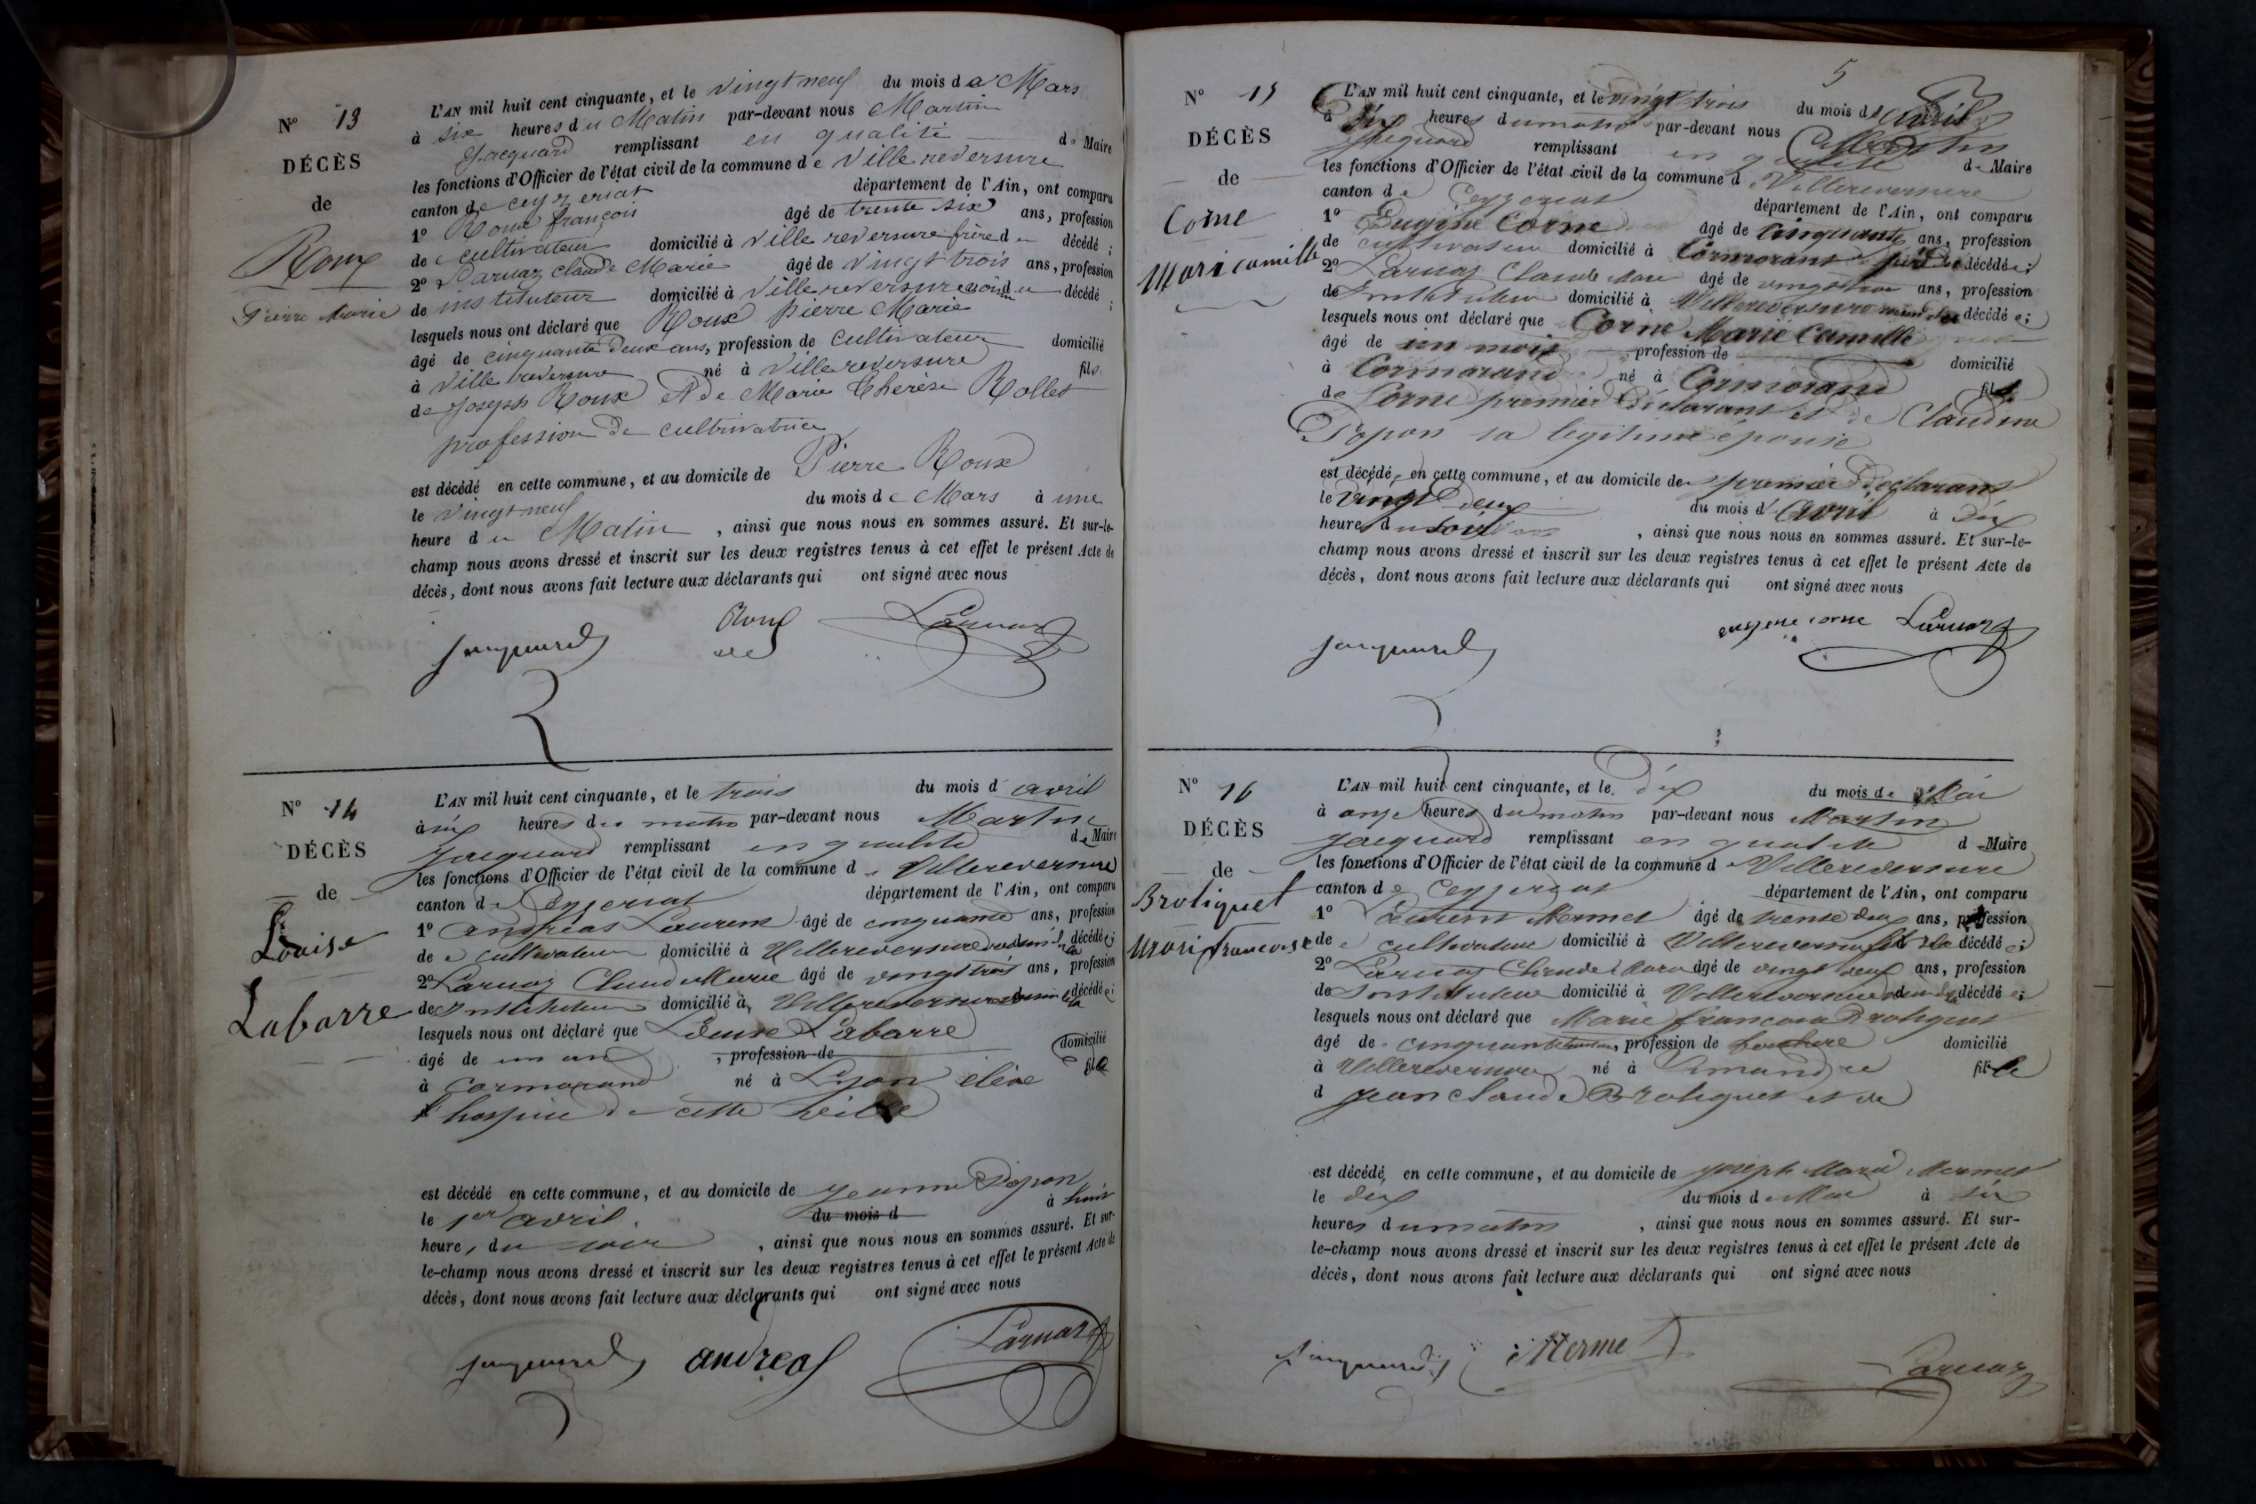 N° 13
DÉCÈS
de
Roux
Pierre Marie
L'AN mil huit cent cinquante, et le vingt neuf du mois de Mars
à six heures du Matin par-devant nous Martin
Jacquard remplissant en qualité de Maire
les fonctions d'Officier de l'état civil de la commune de Villereversure
canton de ceyzeriat département de l'Ain, ont comparu
1° Roux françois âgé de trente six ans, profession
de cultivateur domicilié à Villereversure frère du décédé ;
2° Laruaz Claude Marie âgé de vingt trois ans, profession
de instituteur domicilié à Villereversure voisin du décédé ;
lesquels nous ont déclaré que Roux pierre Marie
âgé de cinquante deux ans, profession de cultivateur domicilié
à Villereversure né à Villereversure fils
de Joseph Roux et de Marie Thérèse Rollet
profession de cultivatrice
est décédé en cette commune, et au domicile de Pierre Roux
le vingt neuf du mois de Mars à une
heure du Matin, ainsi que nous nous en sommes assuré. Et sur-le-
champ nous avons dressé et inscrit sur les deux registres tenus à cet effet le présent Acte de
décès, dont nous avons fait lecture aux déclarants qui ont signé avec nous
Jacquard Roux Laruaz
N° 14
DÉCÈS
de
Louise
Labarre
L'AN mil huit cent cinquante, et le trois du mois d avril
à six heures du matin par-devant nous Martin
Jacquard remplissant en qualité de Maire
les fonctions d'Officier de l'état civil de la commune de Villereversure
canton de Ceyzeriat département de l'Ain, ont comparu
1° andréas Laurent âgé de cinquante ans, profession
de cultivateur domicilié à Villereversure voisin de la décédée ;
2° Laruaz Claude Marie âgé de vingt trois ans, profession
de Instituteur domicilié à Villereversure voisin de la décédée ;
lesquels nous ont déclaré que Louise Labarre
âgé de un an, profession de domicilié
à Cormorand né à Lyon élève fille
l'hospice de cette ville
est décédé en cette commune, et au domicile de Jeanne Papon
le 1er avril du mois d à huit
heures du soir, ainsi que nous nous en sommes assuré. Et sur-
le-champ nous avons dressé et inscrit sur les deux registres tenus à cet effet le présent Acte de
décès, dont nous avons fait lecture aux déclarants qui ont signé avec nous
Jacquard andreas Laruaz
5
N° 15
DÉCÈS
de
Corne
Mari camille
L'AN mil huit cent cinquante, et le vingt trois du mois d'avril
à dix heures du matin par-devant nous Martin
Jacquard remplissant en qualité de Maire
les fonctions d'Officier de l'état civil de la commune de Villereversure
canton de Ceyzeriat département de l'Ain, ont comparu
1° Eugène Corne âgé de Cinquante ans, profession
de cultivateur domicilié à Cormorand père de la décédée ;
2° Laruaz Claude Marie âgé de vingt trois ans, profession
de Instituteur domicilié à Villereversure décédée ;
lesquels nous ont déclaré que Corne Marie Camille
âgé de un mois profession de domicilié
à Cormorand né à Cormorand fille
de Corne premier Déclarant et de Claudine
Papon sa légitime épouse
est décédé, en cette commune, et au domicile de premier Déclarant
le vingt deux du mois d'Avril à dix
heures du soir, ainsi que nous nous en sommes assuré. Et sur-le-
champ nous avons dressé et inscrit sur les deux registres tenus à cet effet le présent Acte de
décès, dont nous avons fait lecture aux déclarants qui ont signé avec nous
Jacquard eugene corne Laruaz
N° 16
DÉCÈS
de
Brotiquet
Mari francoise
L'AN mil huit cent cinquante, et le dix du mois de Mai
à onze heures du matin par-devant nous Martin
Jacquard remplissant en qualité de Maire
les fonctions d'Officier de l'état civil de la commune de Villereversure
canton de Ceyzeriat département de l'Ain, ont comparu
1° Laurent Mermet âgé de trente deux ans, profession
de cultivateur domicilié à Villereversure fils de la décédée ;
2° Laruaz Claude Marie âgé de vingt deux ans, profession
de Instituteur domicilié à Villereversure décédée ;
lesquels nous ont déclaré que Marie françoise Brotiquet
âgé de cinquante ans, profession de domicilié
à Villereversure né à Simandre fille
d Jean Claude Brotiquet et de
est décédé, en cette commune, et au domicile de Joseph Marie Mermet
le dix du mois de Mai à six
heures du matin, ainsi que nous nous en sommes assuré. Et sur-
le-champ nous avons dressé et inscrit sur les deux registres tenus à cet effet le présent Acte de
décès, dont nous avons fait lecture aux déclarants qui ont signé avec nous
Jacquard Mermet Laruaz